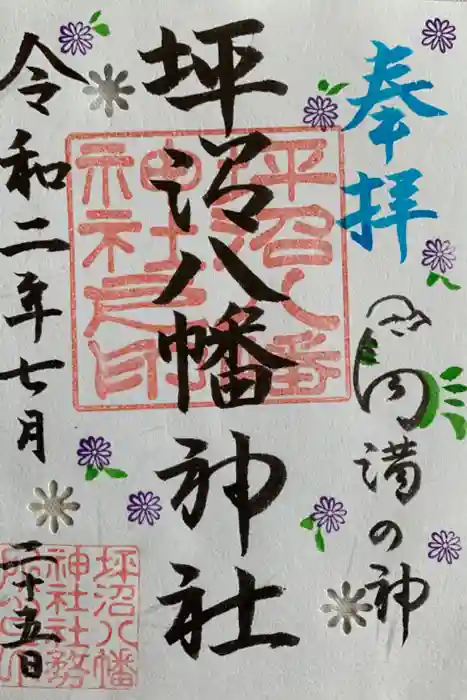 奉拝
円満の神
坪沼八幡神社
令和二年七月
二十五日
坪沼八幡
神社社務